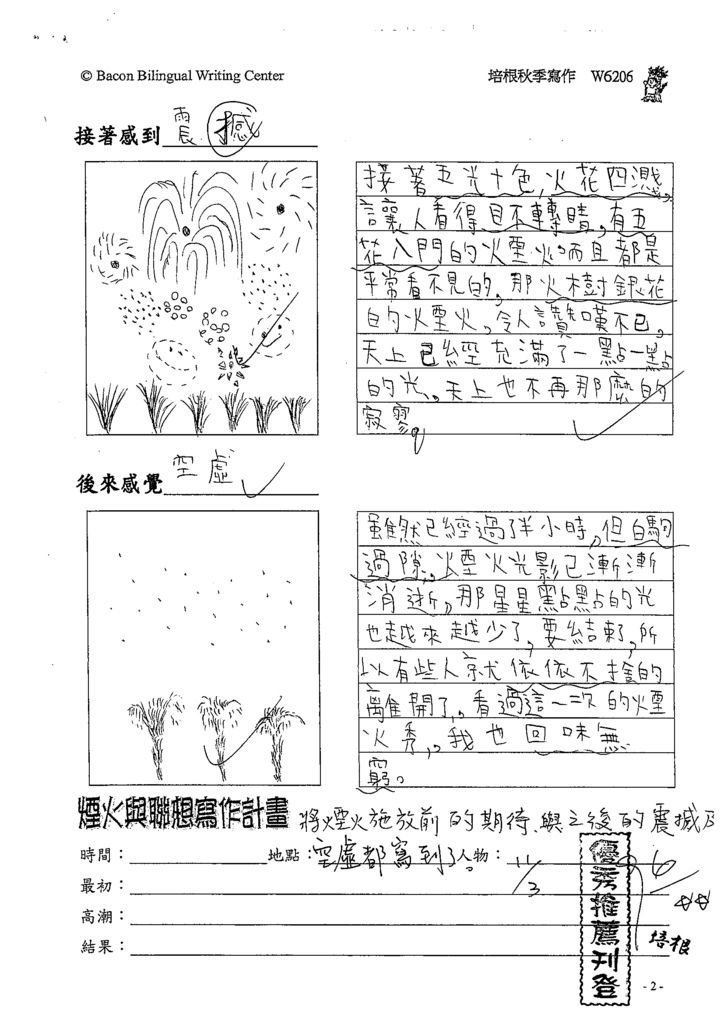 © Bacon Bilingual Writing Center
培根秋季寫作 W6206
接著感到 震撼
接著五光十色,火花四濺,
讓人看得目不轉睛,有五
花八門的火煙火。而且都是
平常看不見的,那火樹銀花
的火煙火,令人讚嘆不已,
天上已經充滿了一點一點
的光,天上也不再那麼的
寂寥。
後來感覺 空虛
雖然已經過了半小時,但白駒
過隙,煙火光影已漸漸
消逝,那星星點點的光
也越來越少了,要結束了,所
以有些人就依依不捨的
離開了,看過這一次的煙
火秀,我也回味無
窮。
煙火與聯想寫作計畫
將煙火施放前的期待、與之後的震撼及
時間: 地點: 空虛都寫到了。 人物: 11/3
最初:
高潮:
結果:
優秀推薦刊登
96
培根
-2-